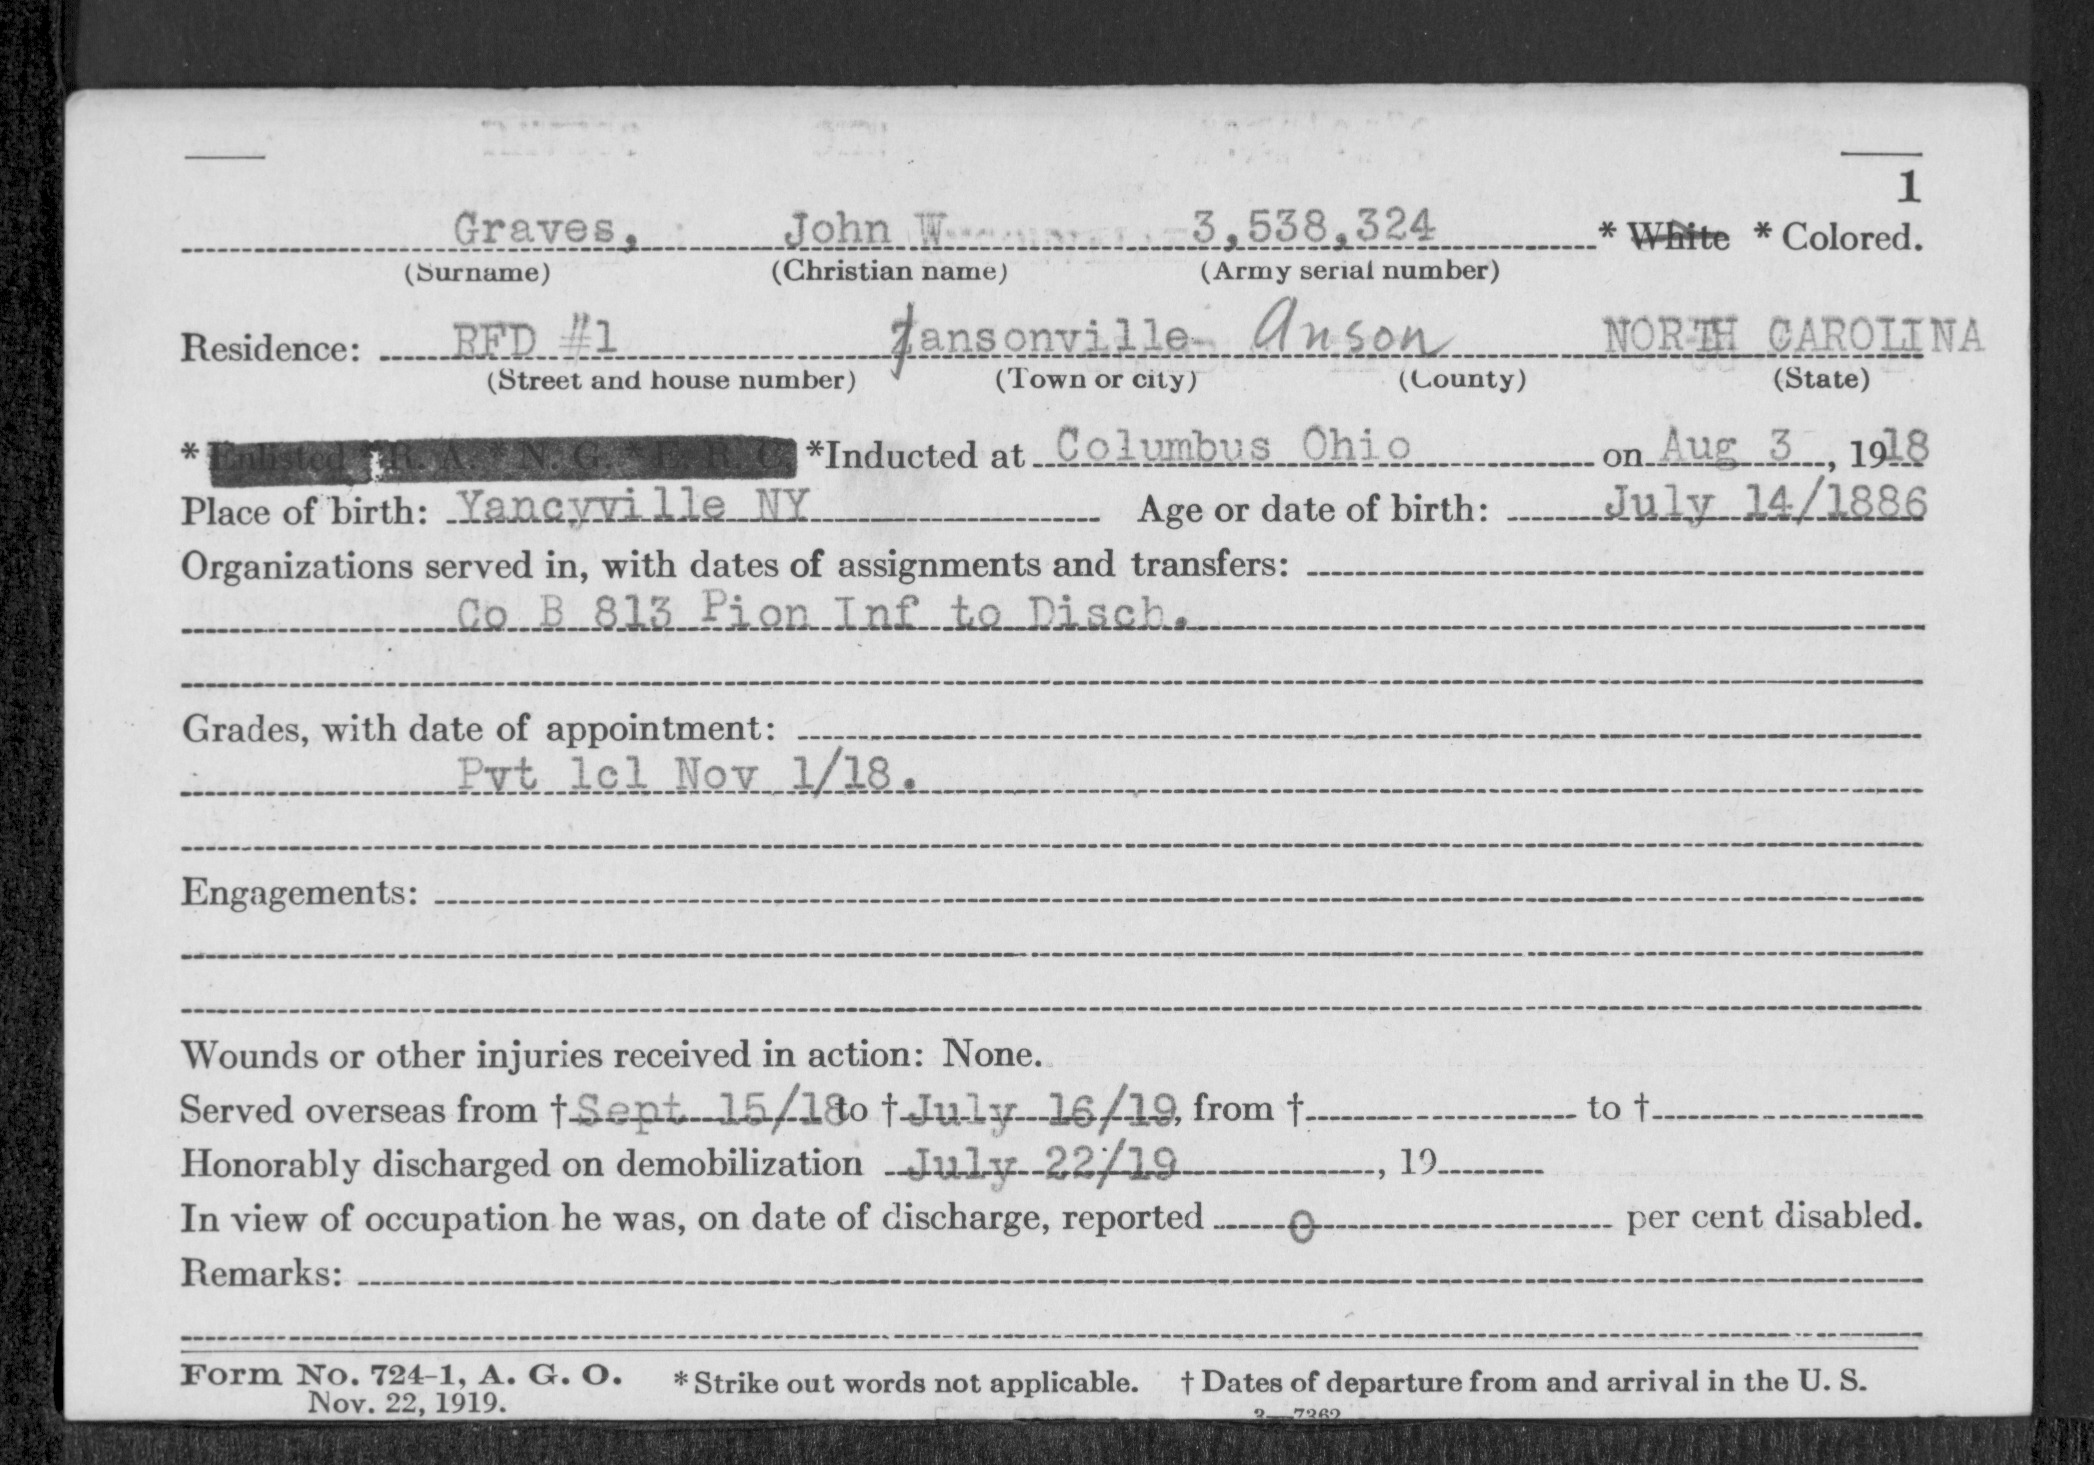 1
Graves, John W 3,538,324 * White * Colored.
(Surname) (Christian name) (Army serial number)
Residence: RFD #1 Jansonville Anson NORTH CAROLINA
(Street and house number) (Town or city) (County) (State)
* Enlisted * R. A. * N. G. * E. R. C. *Inducted at Columbus Ohio on Aug 3, 1918
Place of birth: Yancyville NY Age or date of birth: July 14/1886
Organizations served in, with dates of assignments and transfers:
Co B 813 Pion Inf to Disch.
Grades, with date of appointment:
Pvt 1cl Nov 1/18.
Engagements:
Wounds or other injuries received in action: None.
Served overseas from † Sept 15/18 to † July 16/19, from † to †
Honorably discharged on demobilization July 22/19, 19
In view of occupation he was, on date of discharge, reported 0 per cent disabled.
Remarks:
Form No. 724-1, A. G. O. * Strike out words not applicable. † Dates of departure from and arrival in the U. S.
Nov. 22, 1919.
3—7362